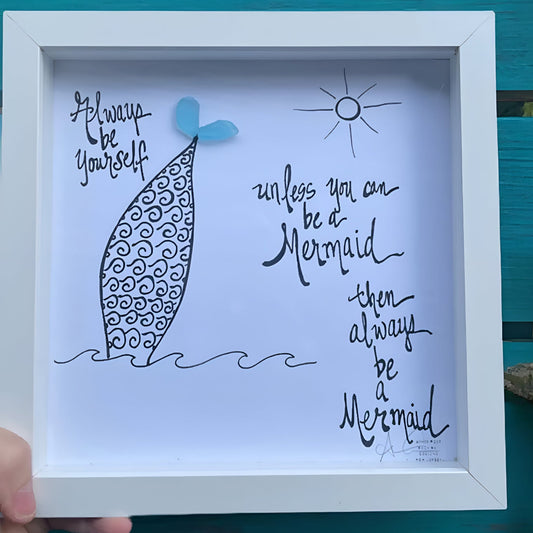 Always
be
yourself
unless you can
be a
Mermaid
then
always
be
a
Mermaid